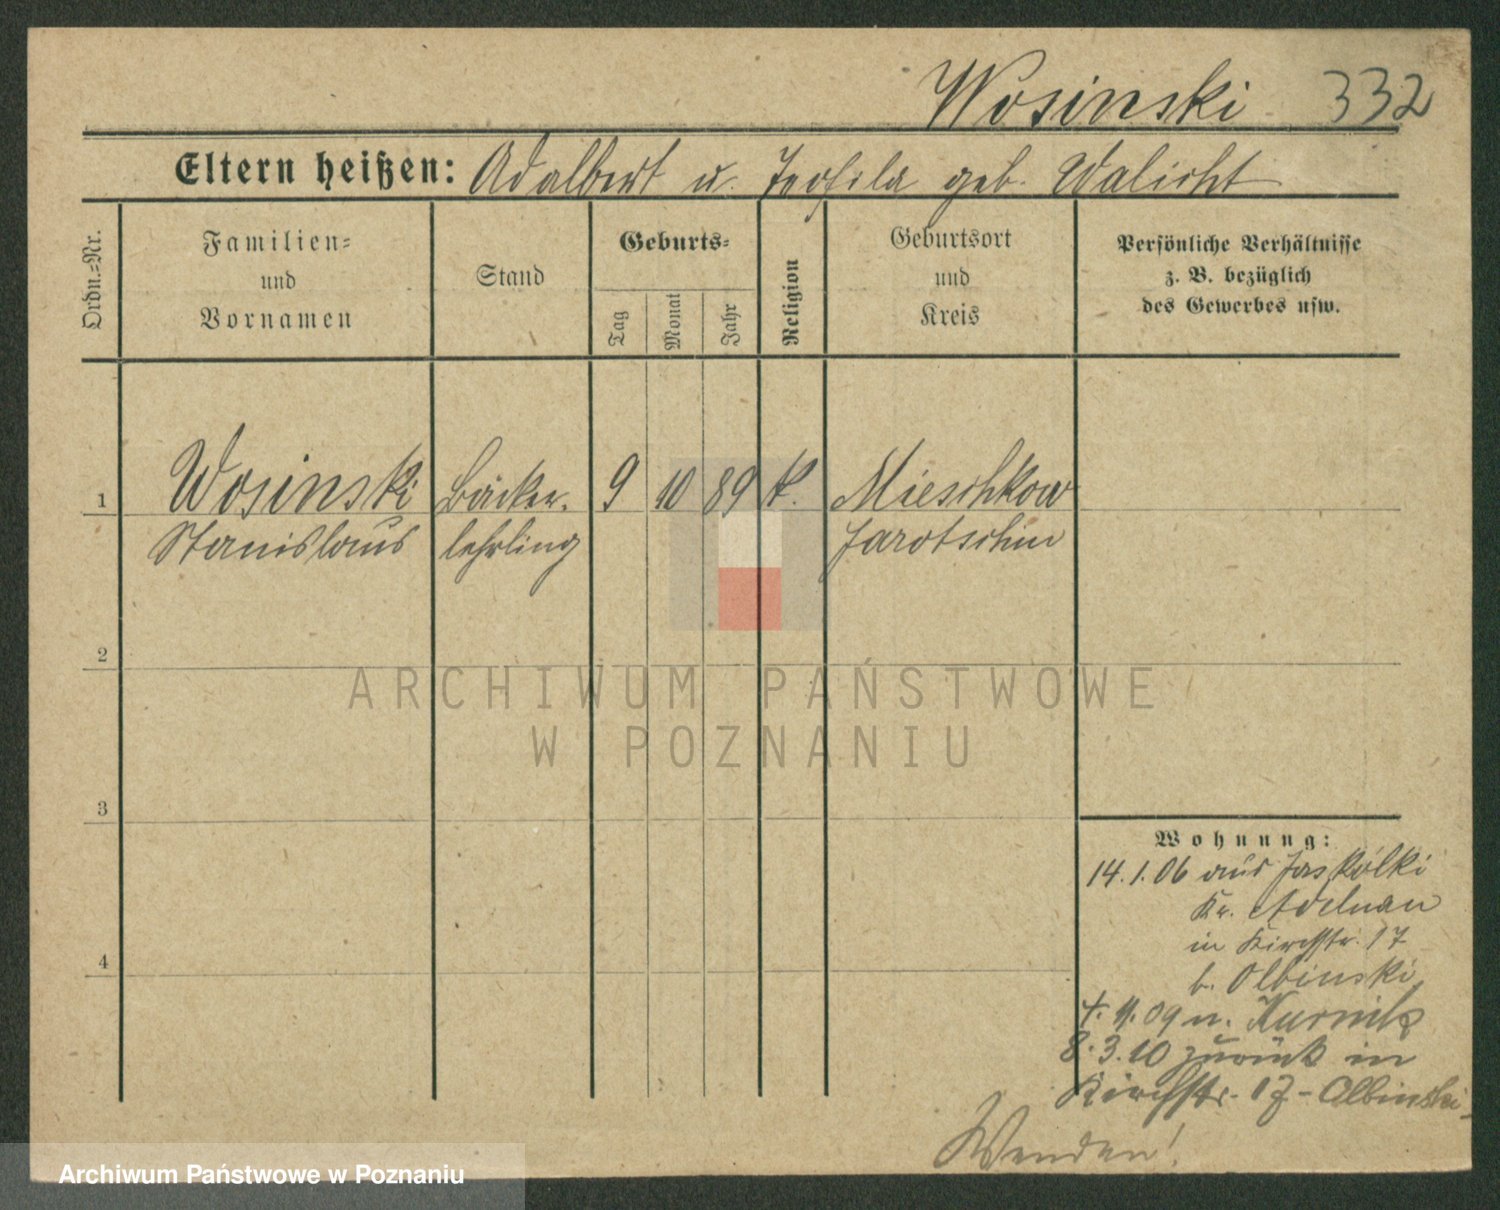 Wosinski 332
Eltern heißen: Adalbert u. Teofila geb. Walicht
Ordn.-Nr.
Familien-
und
Vornamen
Stand
Geburts-
Tag
Monat
Jahr
Religion
Geburtsort
und
Kreis
Persönliche Verhältnisse
z. B. bezüglich
des Gewerbes usw.
1 Wosinski Bäcker- 9 10 89 k. Mieschkow
Stanislaus lehrling Jarotschin
2
ARCHIWUM PAŃSTWOWE
W POZNANIU
3
Wohnung:
14.1.06 aus Jaskolki
Kr. Adelnau
in Kirchstr. 17
b. Olbinski
4
4.11.09 n. Kurnik
8.3.10 zurück in
Kirchstr. 17 - Olbinski
Wenden!
Archiwum Państwowe w Poznaniu